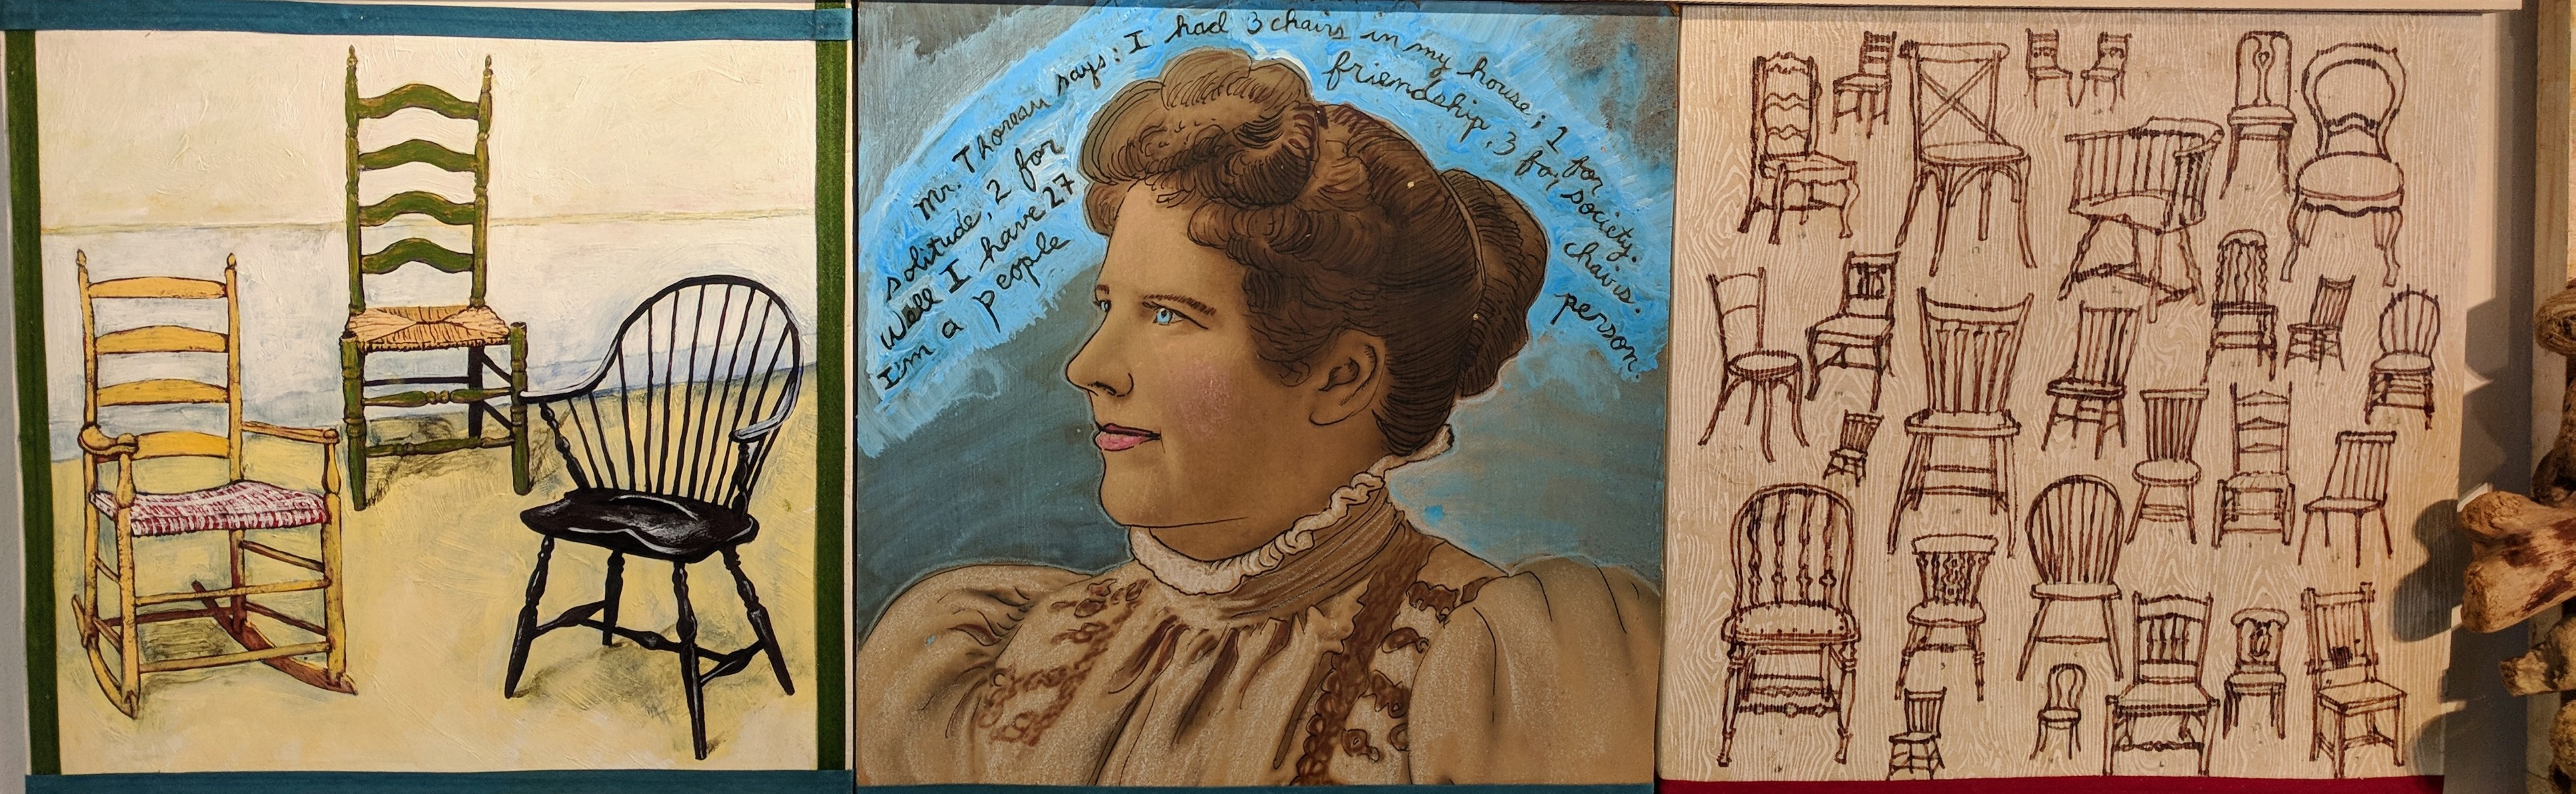 Mr. Thoreau says: I had 3 chairs in my house; 1 for
solitude, 2 for friendship, 3 for society.
Well I have 27 chairs.
I'm a people person.